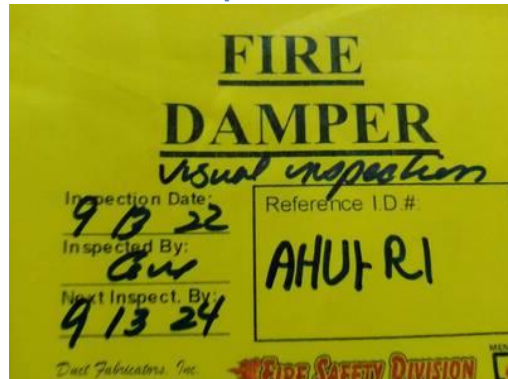 FIRE
DAMPER
visual inspection
Inspection Date:
9 13 22
Inspected By:
Next Inspect. By:
9 13 24
Reference I.D.#:
AHU1 R1
Duct Fabricators, Inc.
FIRE SAFETY DIVISION